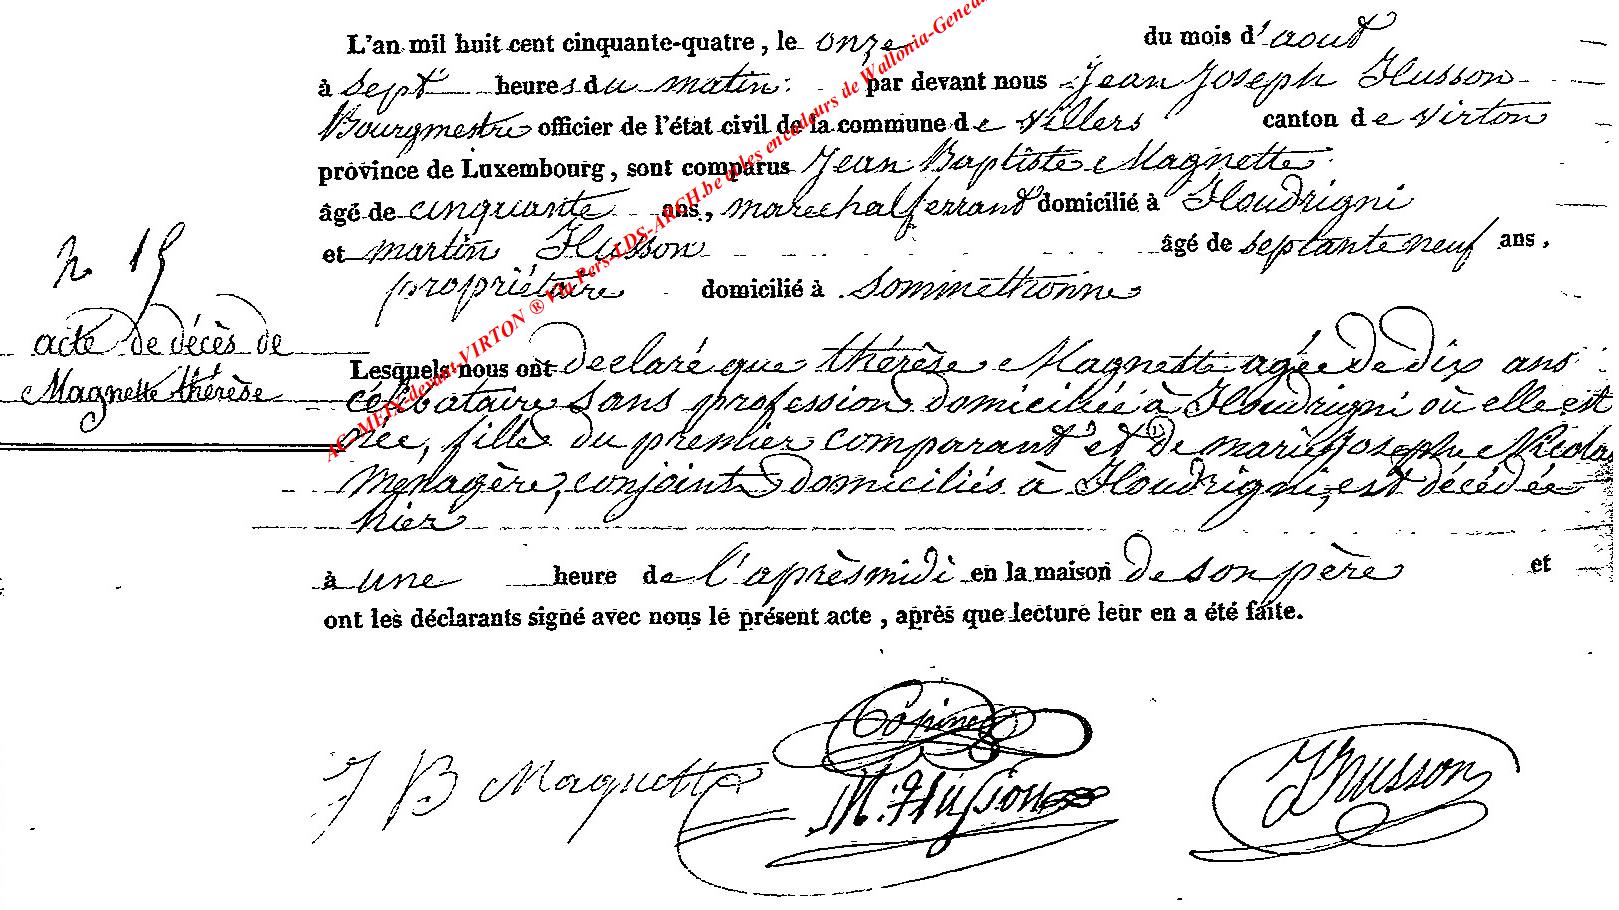 L'an mil huit cent cinquante-quatre, le onze du mois d'aout
à sept heures du matin. par devant nous Jean Joseph Husson
Bourgmestre officier de l'état civil de la commune de Villers canton de Virton
province de Luxembourg, sont comparus Jean Baptiste Magnette
âgé de cinquante ans, marechal ferrand domicilié à Houdrigni
et martin Husson âgé de septante neuf ans,
propriétaire domicilié à Sommethonne
n 15
acte de décès de
Magnette thérèse
Lesquels nous ont declaré que thérèse Magnette agée de dix ans
célibataire sans profession domiciliée à Houdrigni où elle est
née, fille du premier comparant et de marie Josephe Nicolas
menagère, conjoints domiciliés à Houdrigni, est décédée
hier
à une heure de l'aprèsmidi en la maison de son père et
ont les déclarants signé avec nous le présent acte, après que lecture leur en a été faite.
J B Magnette
M. Husson
J Husson
AC MEIX devant VIRTON ® Via Pers-LDS-ARCH.be & les encodeurs de Wallonia-Geneal